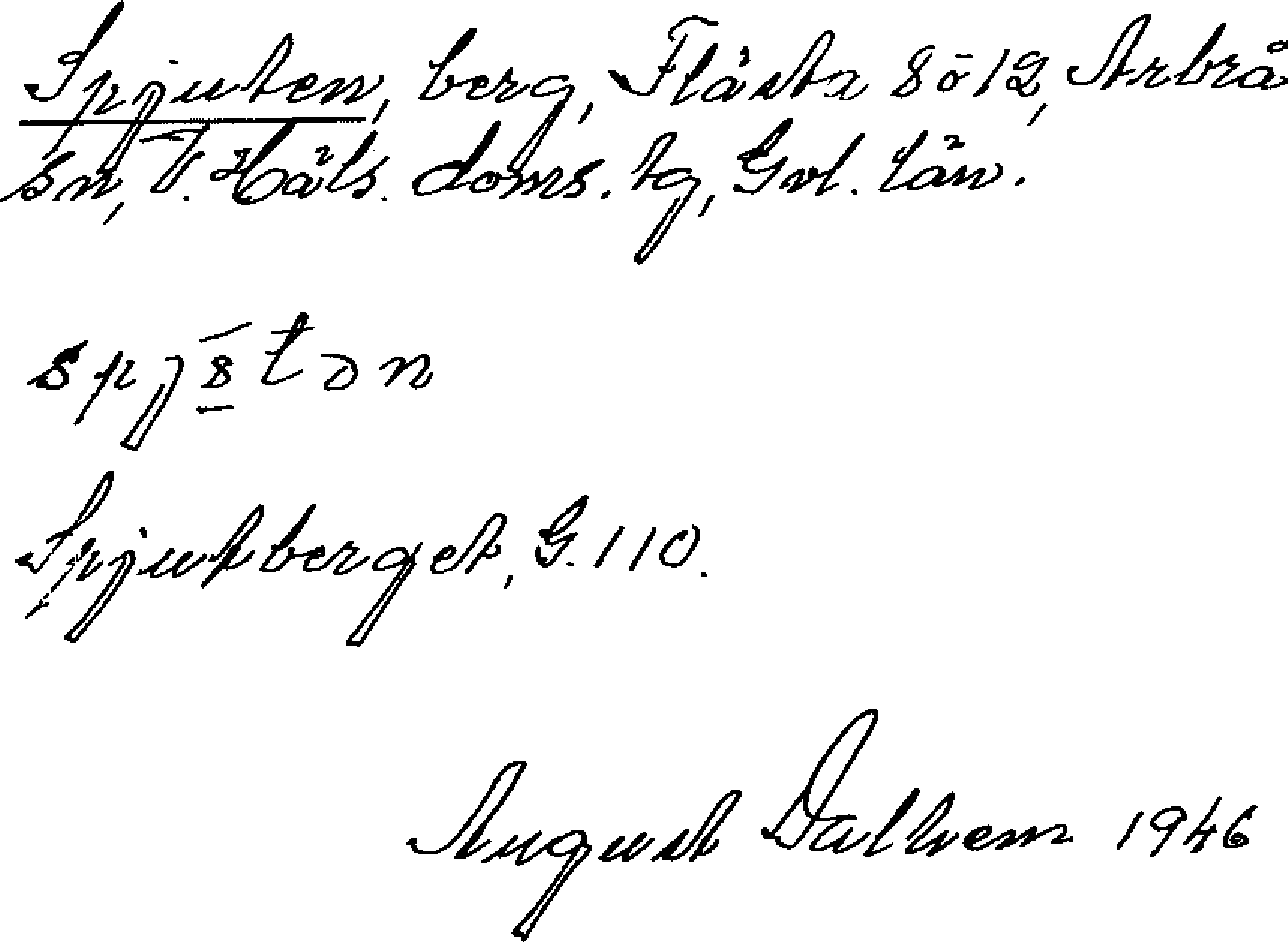 Spjuten, berg, Flästa 8 o 12, Arbrå
sn, V. Häls. doms. tg, Gvl. län.
Spjutberget, G. 110.
August Dalhem 1946